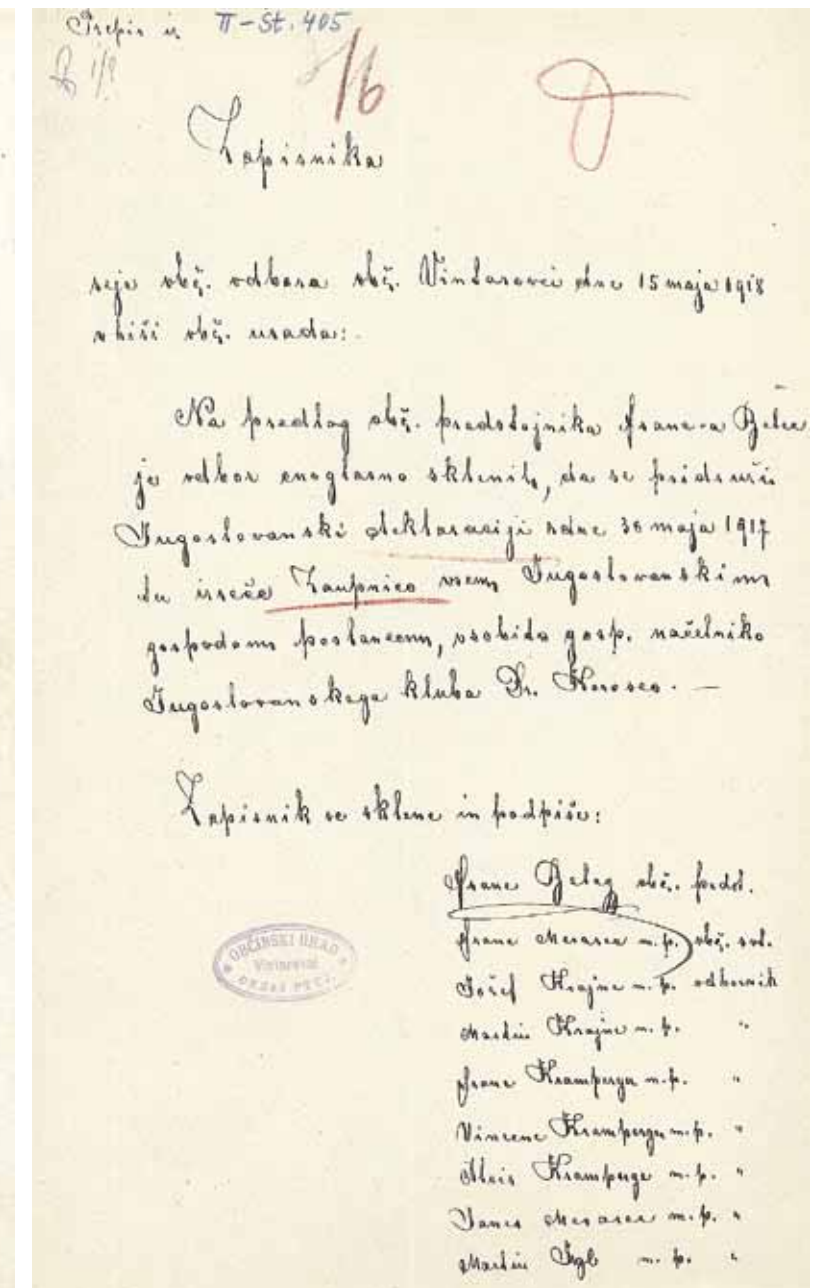 Prepis iz II-št. 405
1/6
Zapisnika
seje obč. odbora obč. Vintarovci dne 15 maja 1918
v hiši obč. urada:
Na predlog obč. predstojnika Franc-a
je odbor enoglasno sklenil, da se pridruži
Jugoslovanski deklaraciji z dne 30 maja 1917
ter izreče Zaupnico vsem Jugoslovanskim
gospodom poslancem, osobito gosp. načelniko
Jugoslovanskega kluba Dr. Korošco. —
Zapisnik se sklene in podpiše:
Franc obč. predst.
OBČINSKI URAD
Vintarovci
OKRAJ PTUJ
Franc m.p. obč. svet.
Jožef Krajnc m.p. odbornik
Martin Krajnc m.p. "
Franc Kramperger m.p. "
Vincenc Kramperger m.p. "
Alois Kramperge m.p. "
Janez m.p. "
Martin m.p. "